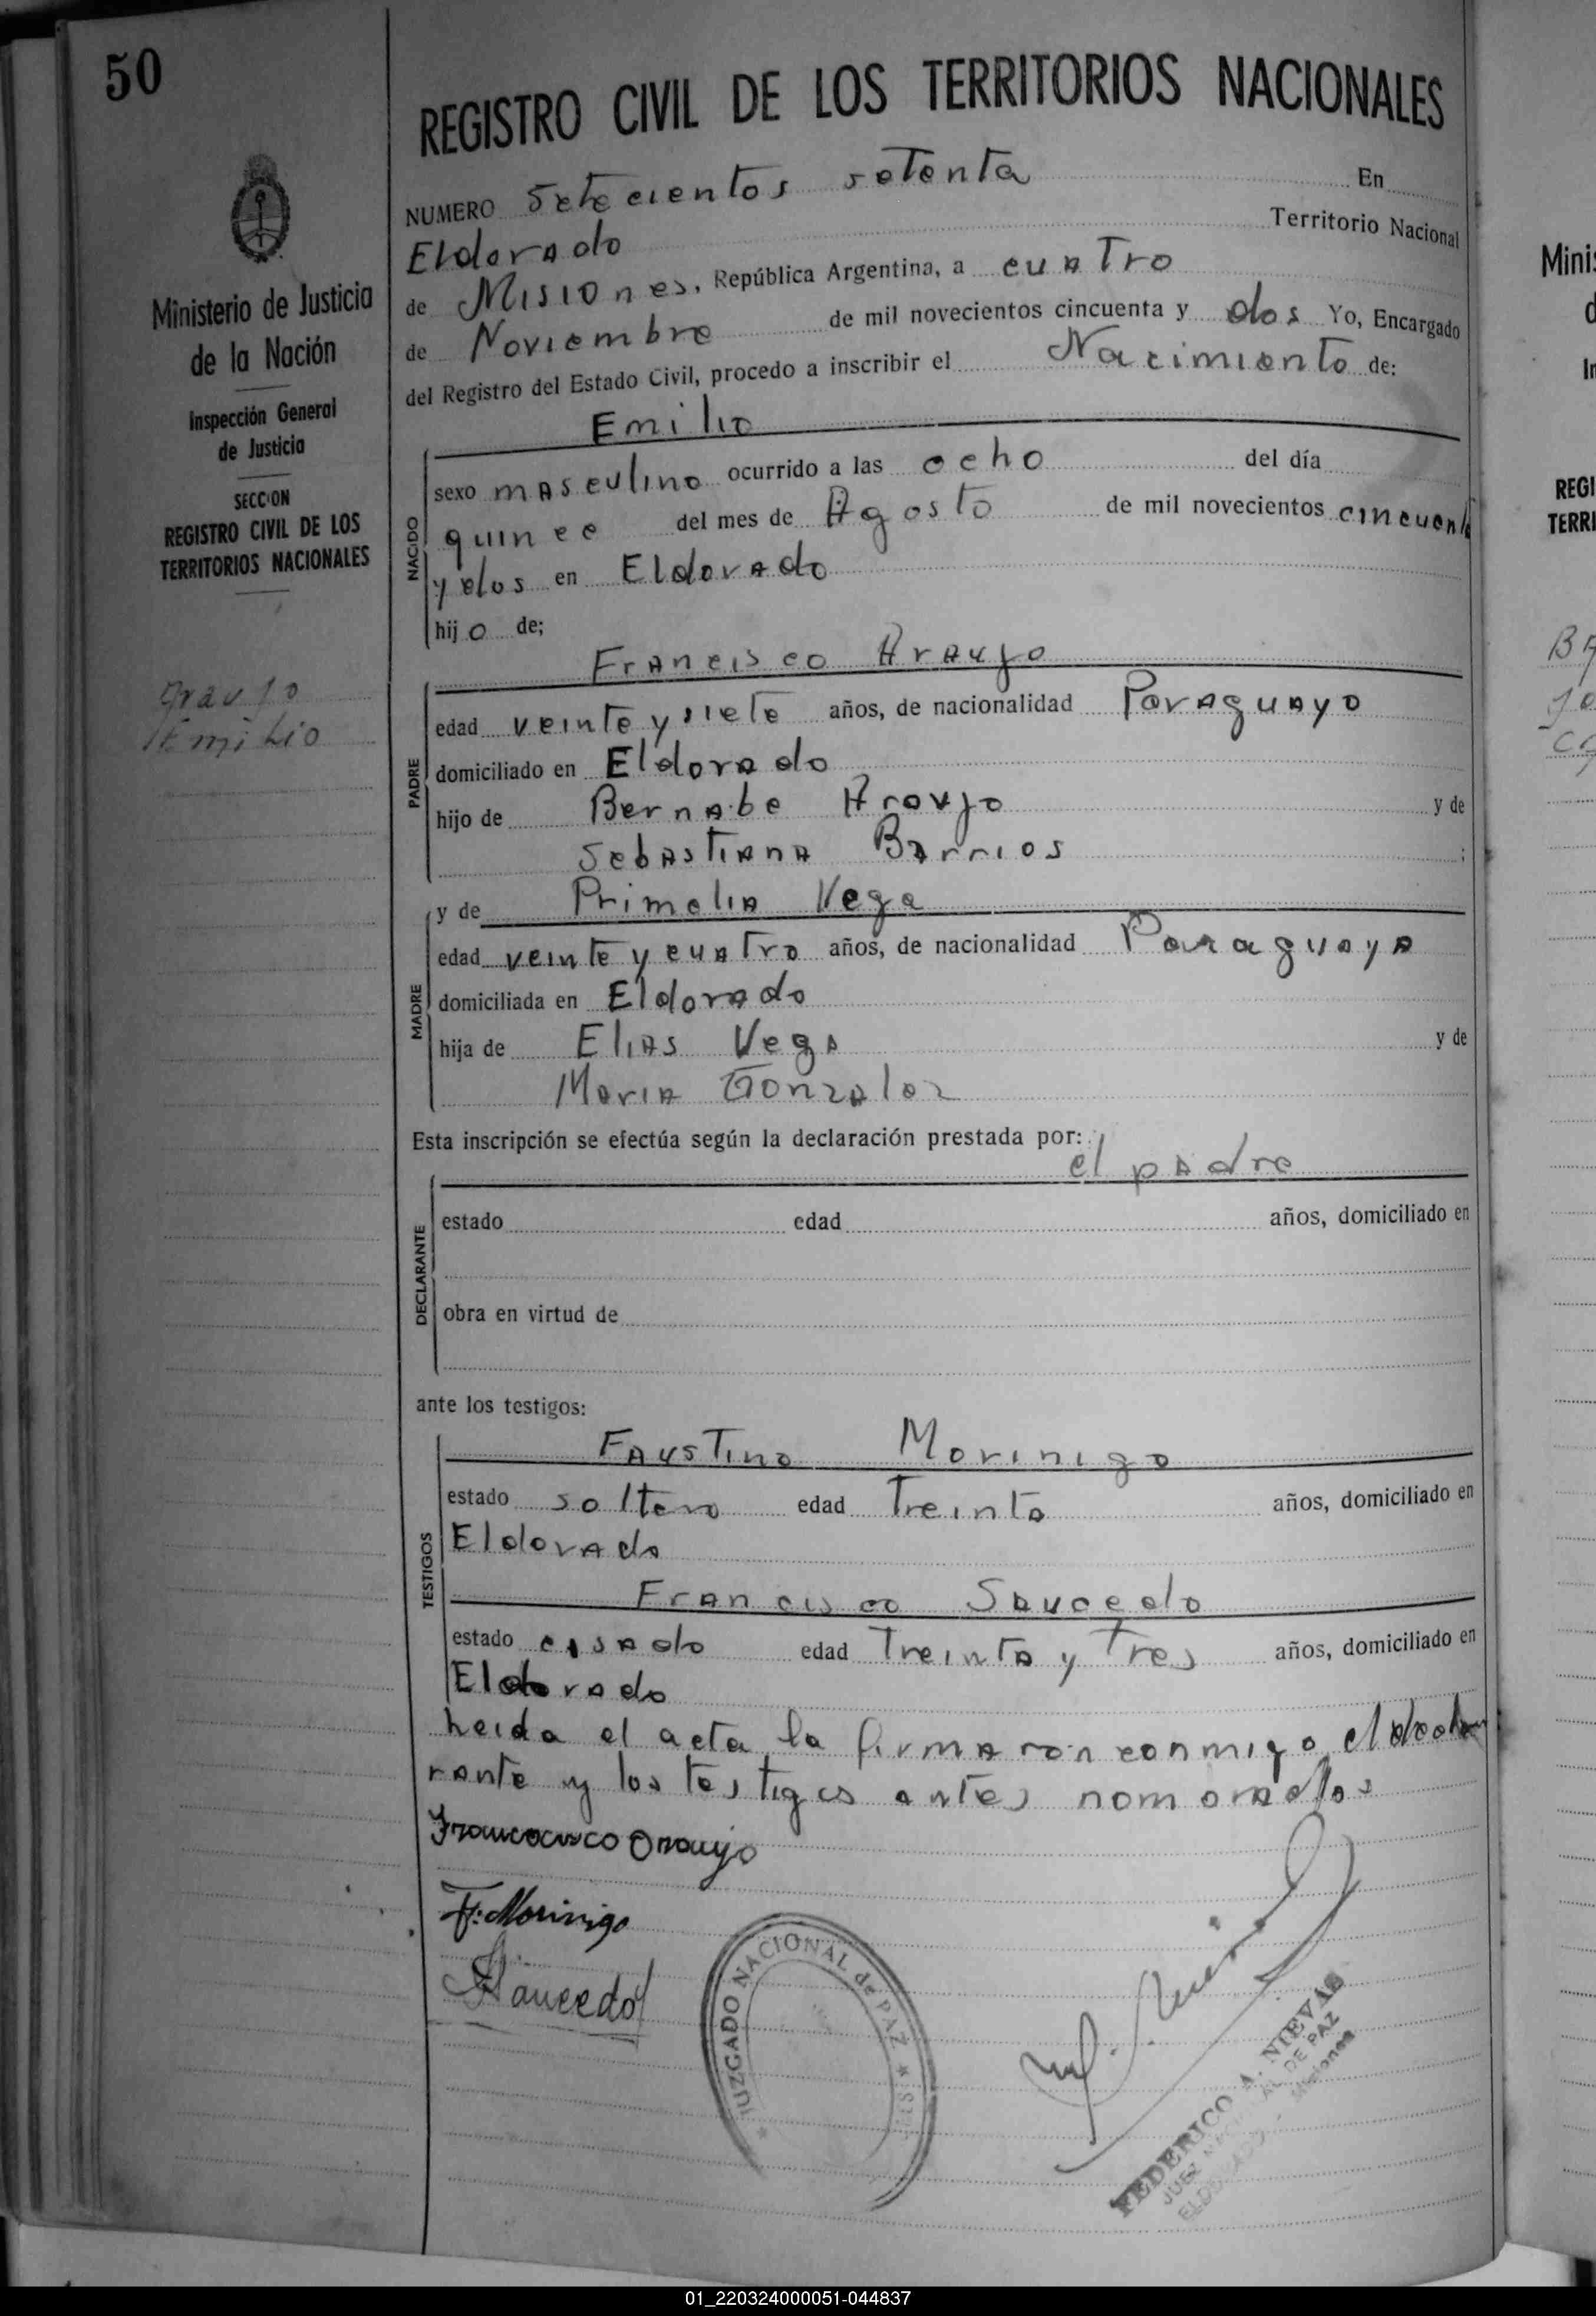 50
Ministerio de Justicia
de la Nación
Inspección General
de Justicia
SECCION
REGISTRO CIVIL DE LOS
TERRITORIOS NACIONALES
Araujo
Emilio
REGISTRO CIVIL DE LOS TERRITORIOS NACIONALES
NUMERO Setecientos setenta En
Eldorado Territorio Nacional
de Misiones, República Argentina, a cuatro
de Noviembre de mil novecientos cincuenta y dos Yo, Encargado
del Registro del Estado Civil, procedo a inscribir el Nacimiento de:
Emilio
NACIDO
sexo masculino ocurrido a las ocho del día
quince del mes de Agosto de mil novecientos cincuenta
y dos en Eldorado
hijo de;
Francisco Araujo
PADRE
edad veinte y siete años, de nacionalidad Paraguayo
domiciliado en Eldorado
hijo de Bernabe Araujo y de
Sebastiana Barrios ;
y de Primelia Vega
MADRE
edad veinte y cuatro años, de nacionalidad Paraguaya
domiciliada en Eldorado
hija de Elias Vega y de
Maria Gonzalez
Esta inscripción se efectúa según la declaración prestada por:
el padre
DECLARANTE
estado edad años, domiciliado en
obra en virtud de
ante los testigos:
Faustino Morinigo
TESTIGOS
estado soltero edad Treinta años, domiciliado en
Eldorado
Francisco Saucedo
estado casado edad Treinta y Tres años, domiciliado en
Eldorado
Leida el acta la firmaron conmigo el decla
rante y los testigos antes nombrados
Francocisco Oraujo
F. Morinigo
F Saucedo
JUZGADO NACIONAL de PAZ
FEDERICO A. NIEVAS
JUEZ NACIONAL DE PAZ
ELDORADO - Misiones
Minis
d
In
REGI
TERRI
01_220324000051-044837